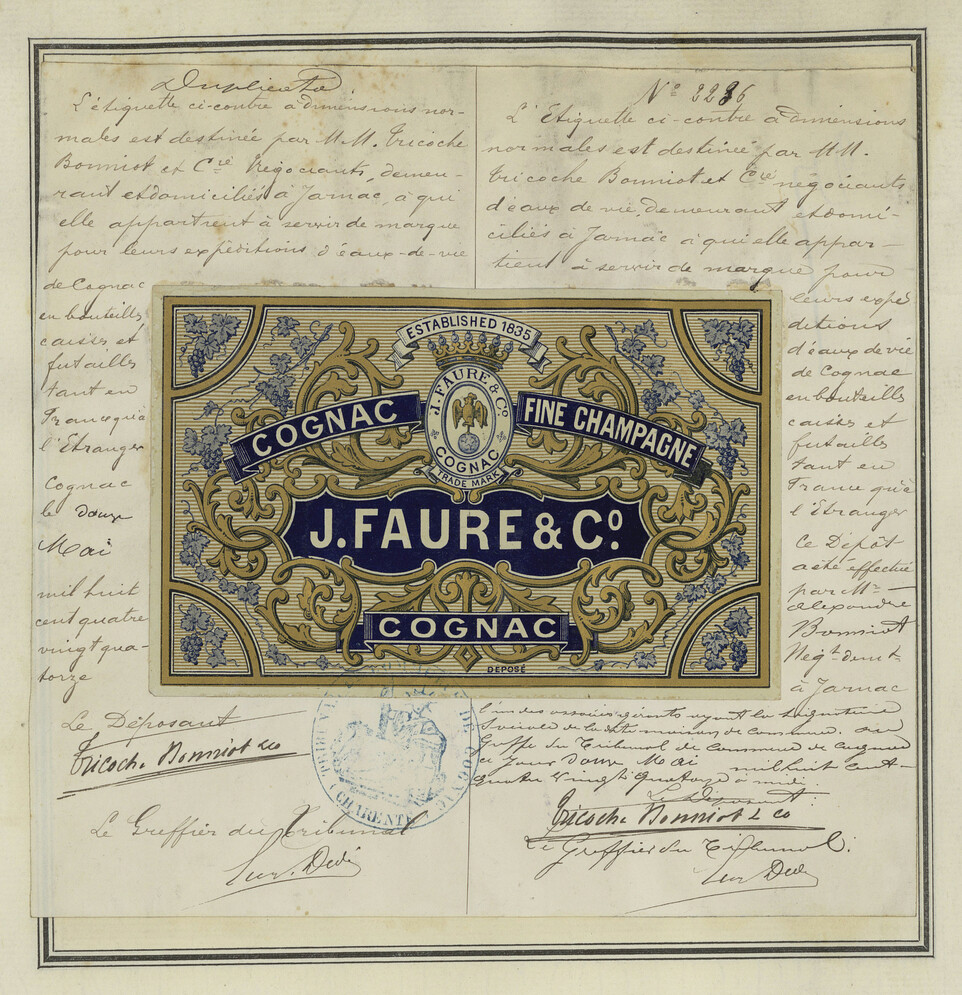 Duplicata
L'étiquette ci-contre à dimensions nor-
males est destinée par M.M. Tricoche
Bonniot et Cie Négociants, demeu-
rant et domiciliés à Jarnac, à qui
elle appartient à servir de marque
pour leurs expéditions d'eaux-de-vie
de Cognac
en bouteilles
caisses et
futailles
tant en
France qu'à
l'Etranger
Cognac
le douze
Mai
mil huit
cent quatre
vingt qua-
torze
Le Déposant
Tricoche Bonniot & co
Le Greffier du Tribunal
No 3236
L'Etiquette ci-contre à dimensions
normales est destinée par MM.
Tricoche Bonniot et Cie négociants
d'eaux de vie, demeurant et domi-
ciliés à Jarnac à qui elle appar-
tient à servir de marque pour
leurs expé
ditions
d'eaux de vie
de Cognac
en bouteilles
caisses et
futailles
tant en
France qu'à
l'Etranger
Ce Dépôt
a été effectué
par Mr
Alexandre
Bonniot
Négt demt
à Jarnac
l'un des associés gérants ayant la signature
Sociale de la dite maison de commerce. au
Greffe du Tribunal de Commerce de Cognac
ce jour douze Mai mil huit cent
quatre vingt quatorze à midi.
Le Déposant
Tricoche Bonniot & co
Le Greffier du Tribunal.
ESTABLISHED 1835
J. FAURE & Co
COGNAC
TRADE MARK
COGNAC
FINE CHAMPAGNE
J. FAURE & Co.
COGNAC
DEPOSÉ
DE COGNAC
(CHARENTE)